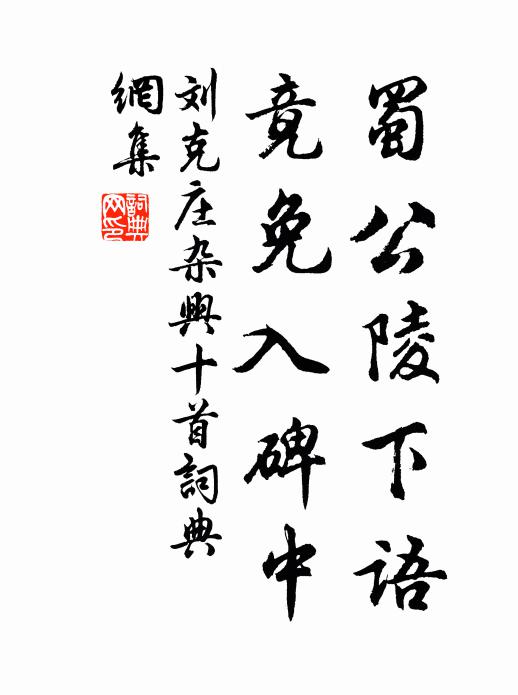 蜀公陵下语
竟免入碑中
刘克庄杂興十首詞典
網集
詞典网印